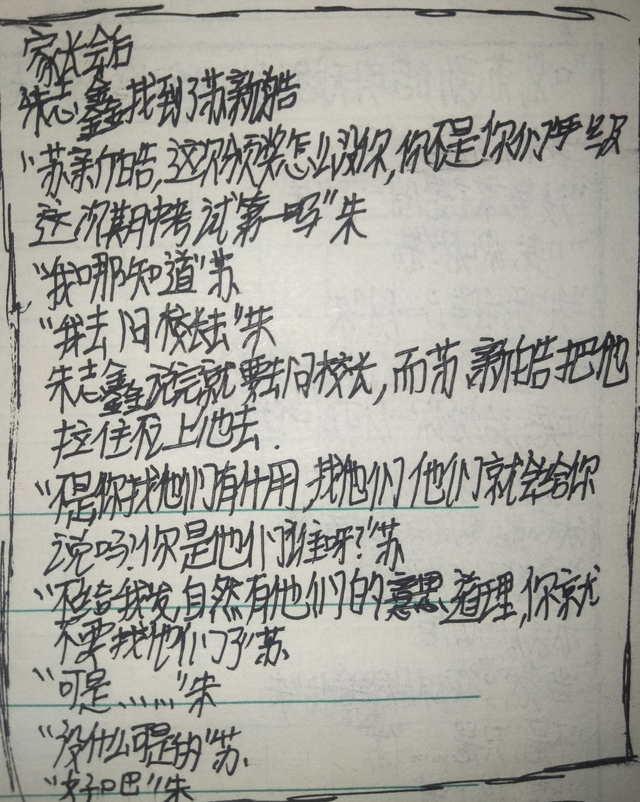 家长会后
朱志鑫找到了苏新皓
“苏新皓,这次颁奖怎么没你,你不是你们年级
这次期中考试第一吗”朱
“我哪知道”苏
“我去问校长去”朱
朱志鑫说完就要去问校长,而苏新皓把他
拉住不上他去.
“不是你找他们有什用,找他们他们就会给你
说吗?你是他们谁呀?”苏
“不给我发,自然有他们的意思道理,你就
不要找他们了”苏
“可是……”朱
“没什么可是的”苏
“好吧”朱